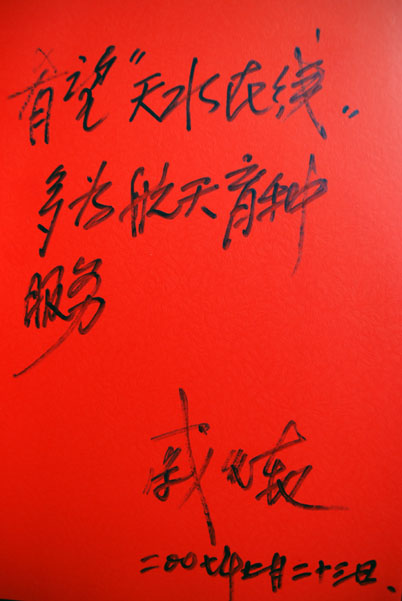 希望"天水在线"
多为航天育种
服务
戚发轫
二00七年七月二十三日.